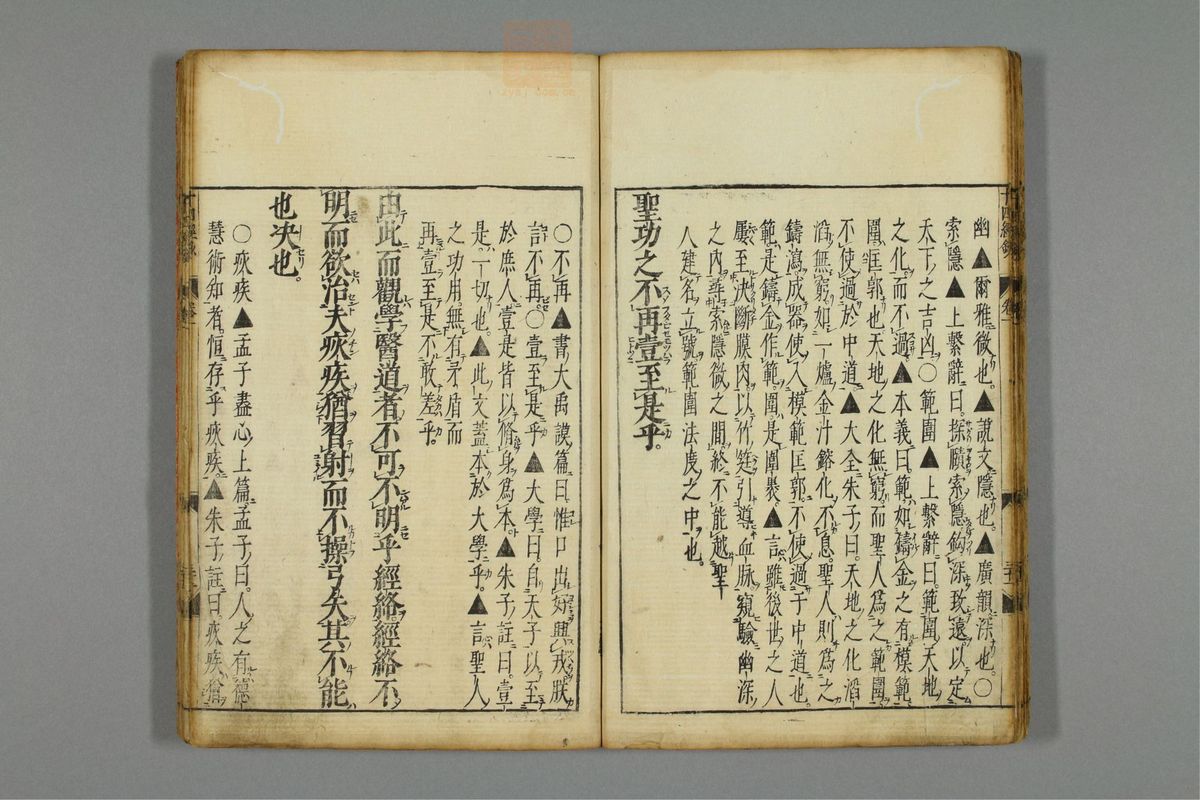 幽▲爾雅微也。▲說文隱也。▲廣韻深也。○
索隱▲上繫辭曰。探賾索隱鈎深致遠以定
天下之吉凶○範圍▲上繫辭曰。範圍天地
之化而不過▲本義曰範如鑄金之有模範
圍匡郭也天地之化無窮而聖人爲之範圍
不使過於中道▲大全朱子曰。天地之化滔
滔無窮如一爐金汁鎔化不息。聖人則爲之
鑄瀉成器使入模範匡郭。不使過于中道也。
範是鑄金作範。圍是圍裹▲言雖後世之人
屢至決斷膜肉以竹筳引導血脉窺驗幽深
之內尋索隱微之間終不能越聖
人建名立號範圍法度之中也。
聖功之不再壹至是乎。
○不再▲書大禹謨篇曰惟口出好興戎朕
言不再○壹至是乎▲大學曰。自天子以至
於庶人壹是皆以脩身爲本▲朱子註曰。壹
是一切也。▲此文蓋本於大學乎。▲言聖人
之功用無有矛盾而
再壹至是不敢差乎。
由此而觀學醫道者不可不明乎經絡經絡不
明而欲治夫疢疾猶習射而不操弓矢其不能
也决也。
○疢疾▲孟子盡心上篇孟子曰。人之有德
慧術知者恒存乎疢疾▲朱子註曰疢疾猶